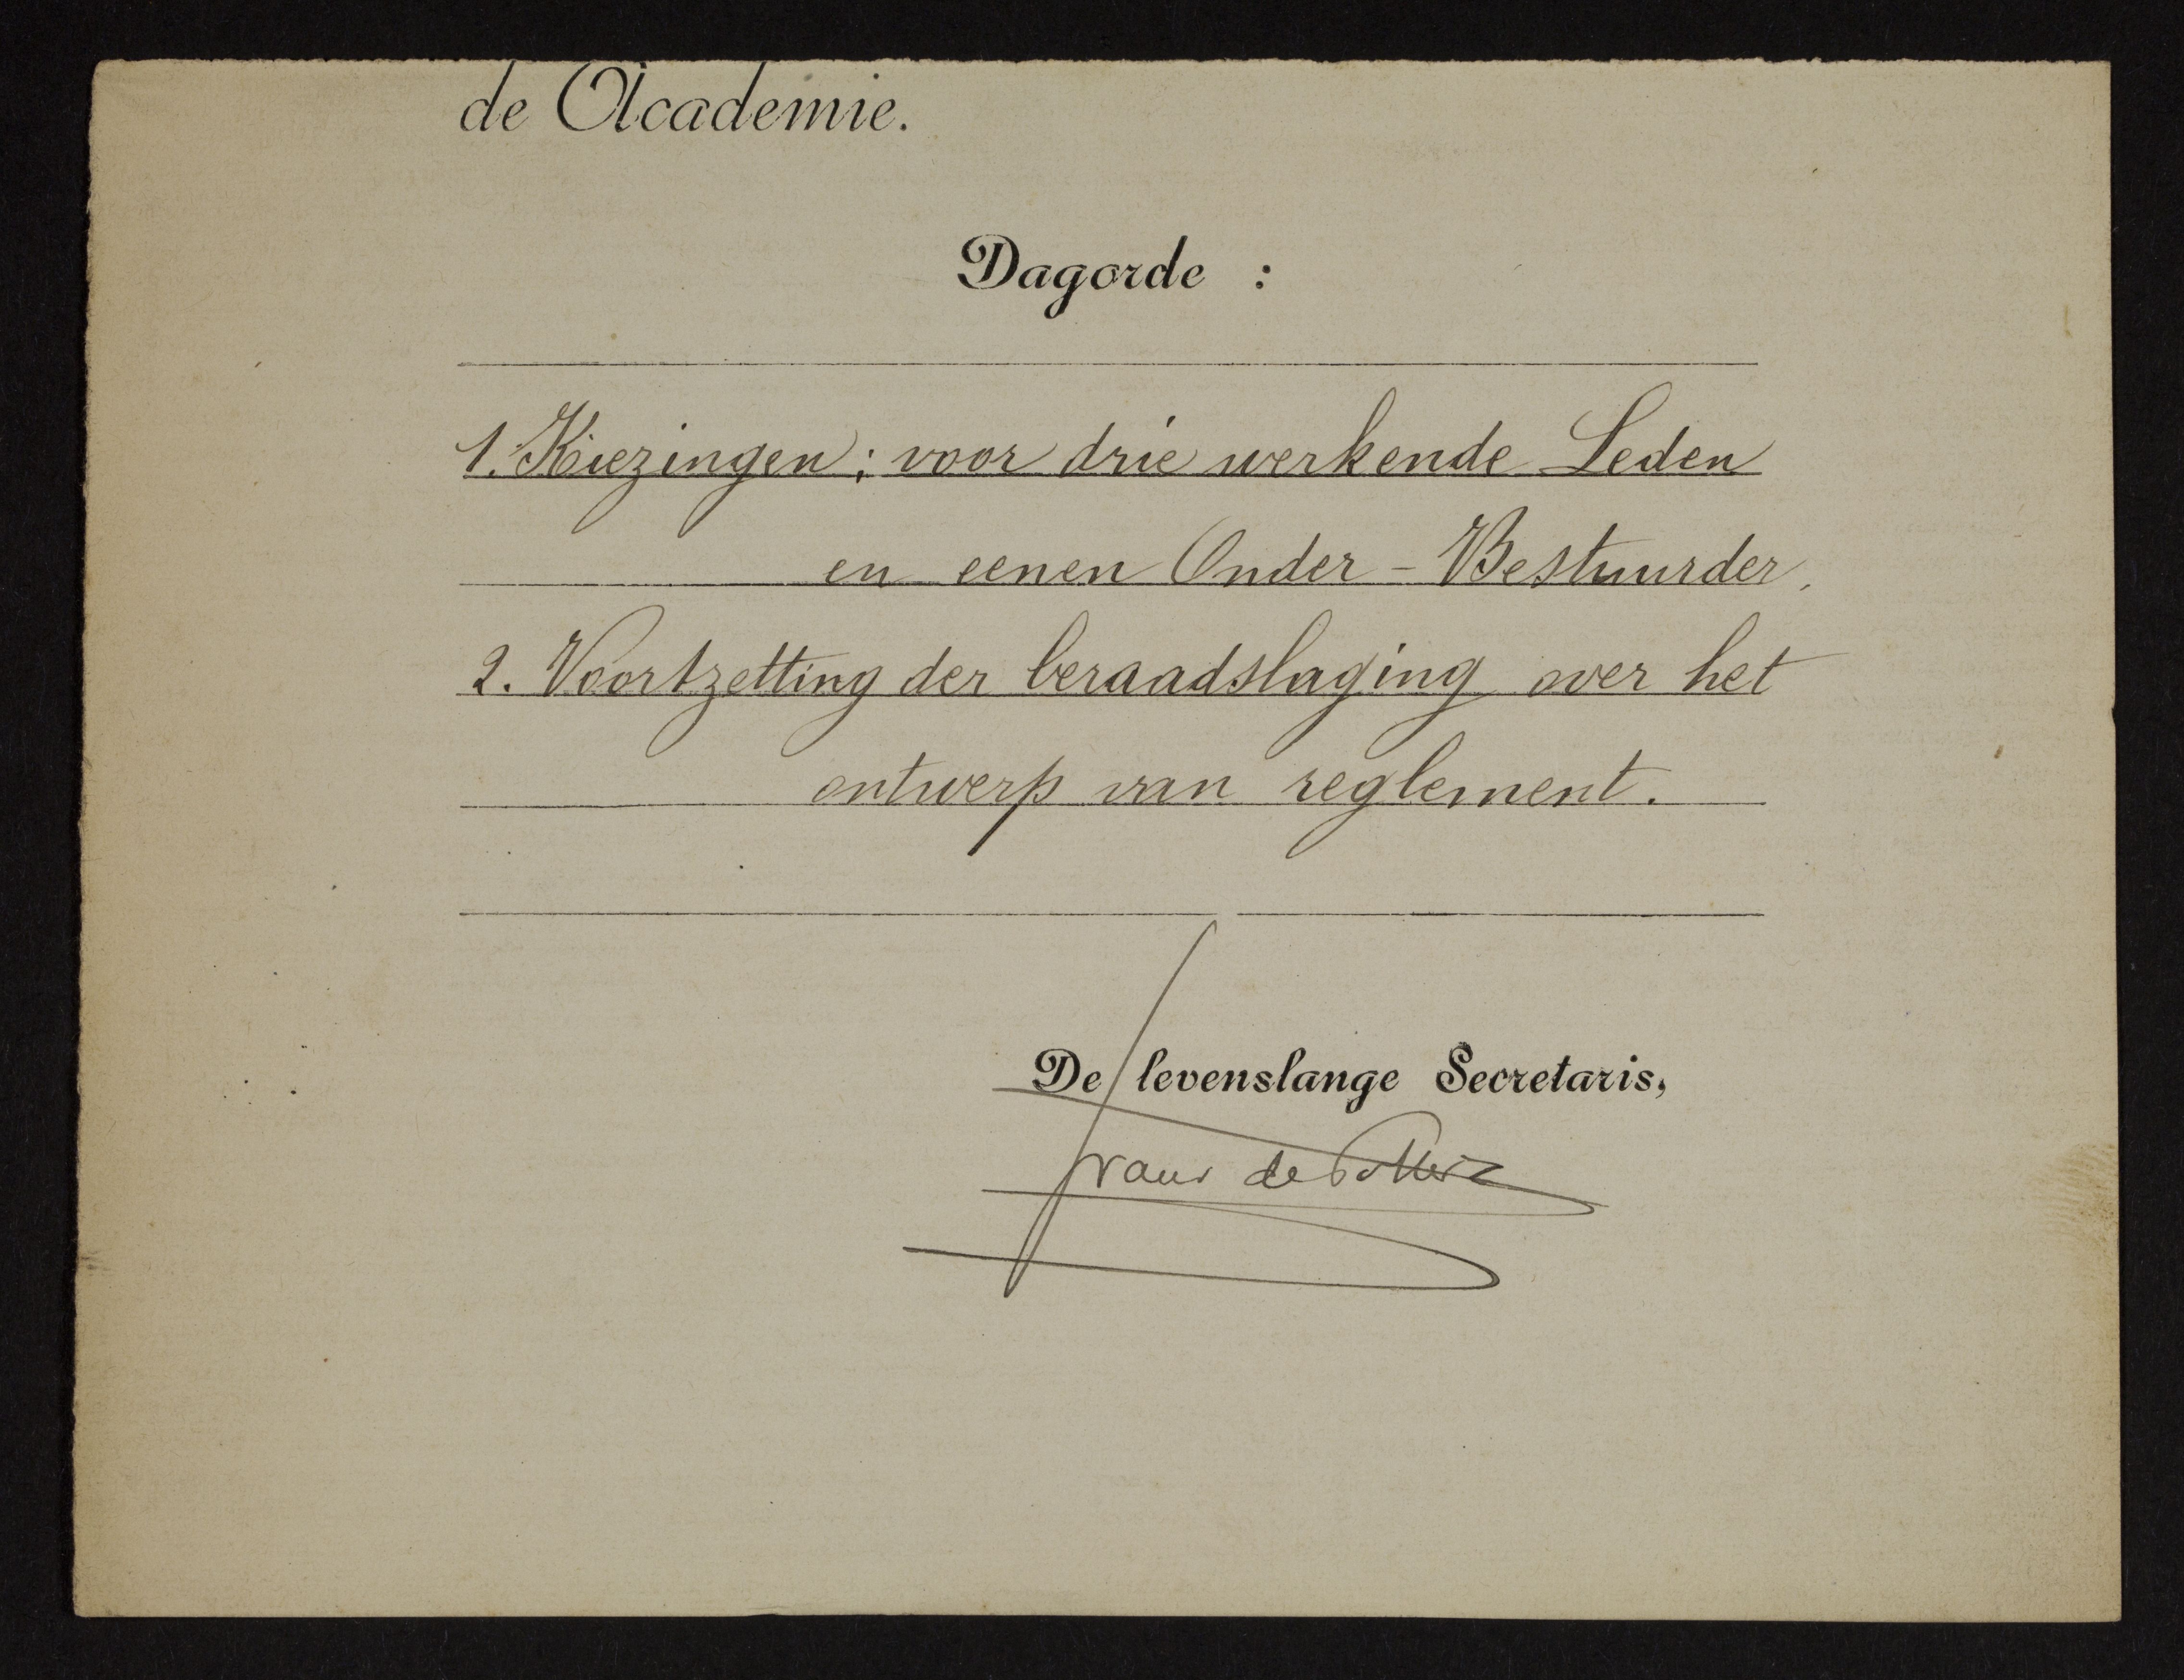 de Academie.
Dagorde :
1. Kiezingen: voor drie werkende Leden
en eenen Onder-Bestuurder.
2. Voortzetting der beraadslaging over het
ontwerp van reglement.
De levenslange Secretaris,
Frans de Potter